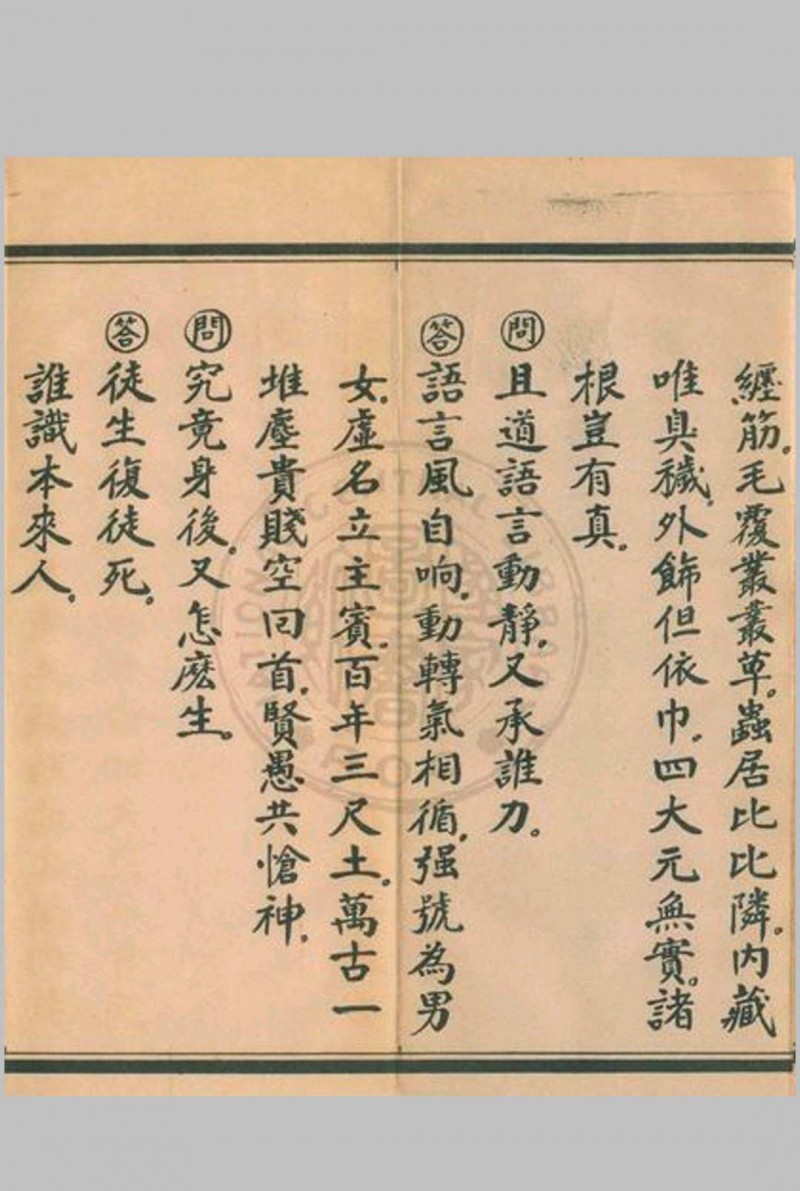 纏筋。毛覆叢叢草。蟲居比比隣。内藏
唯臭穢。外飾但依巾。四大元無實。諸
根豈有真。
問且道語言動靜。又承誰力。
答語言風自响。動轉氣相循。强號為男
女。虛名立主賓。百年三尺土。萬古一
堆塵。貴賤空回首。賢愚共愴神。
問究竟身後。又怎麽生。
答徒生復徒死。
誰識本來人。